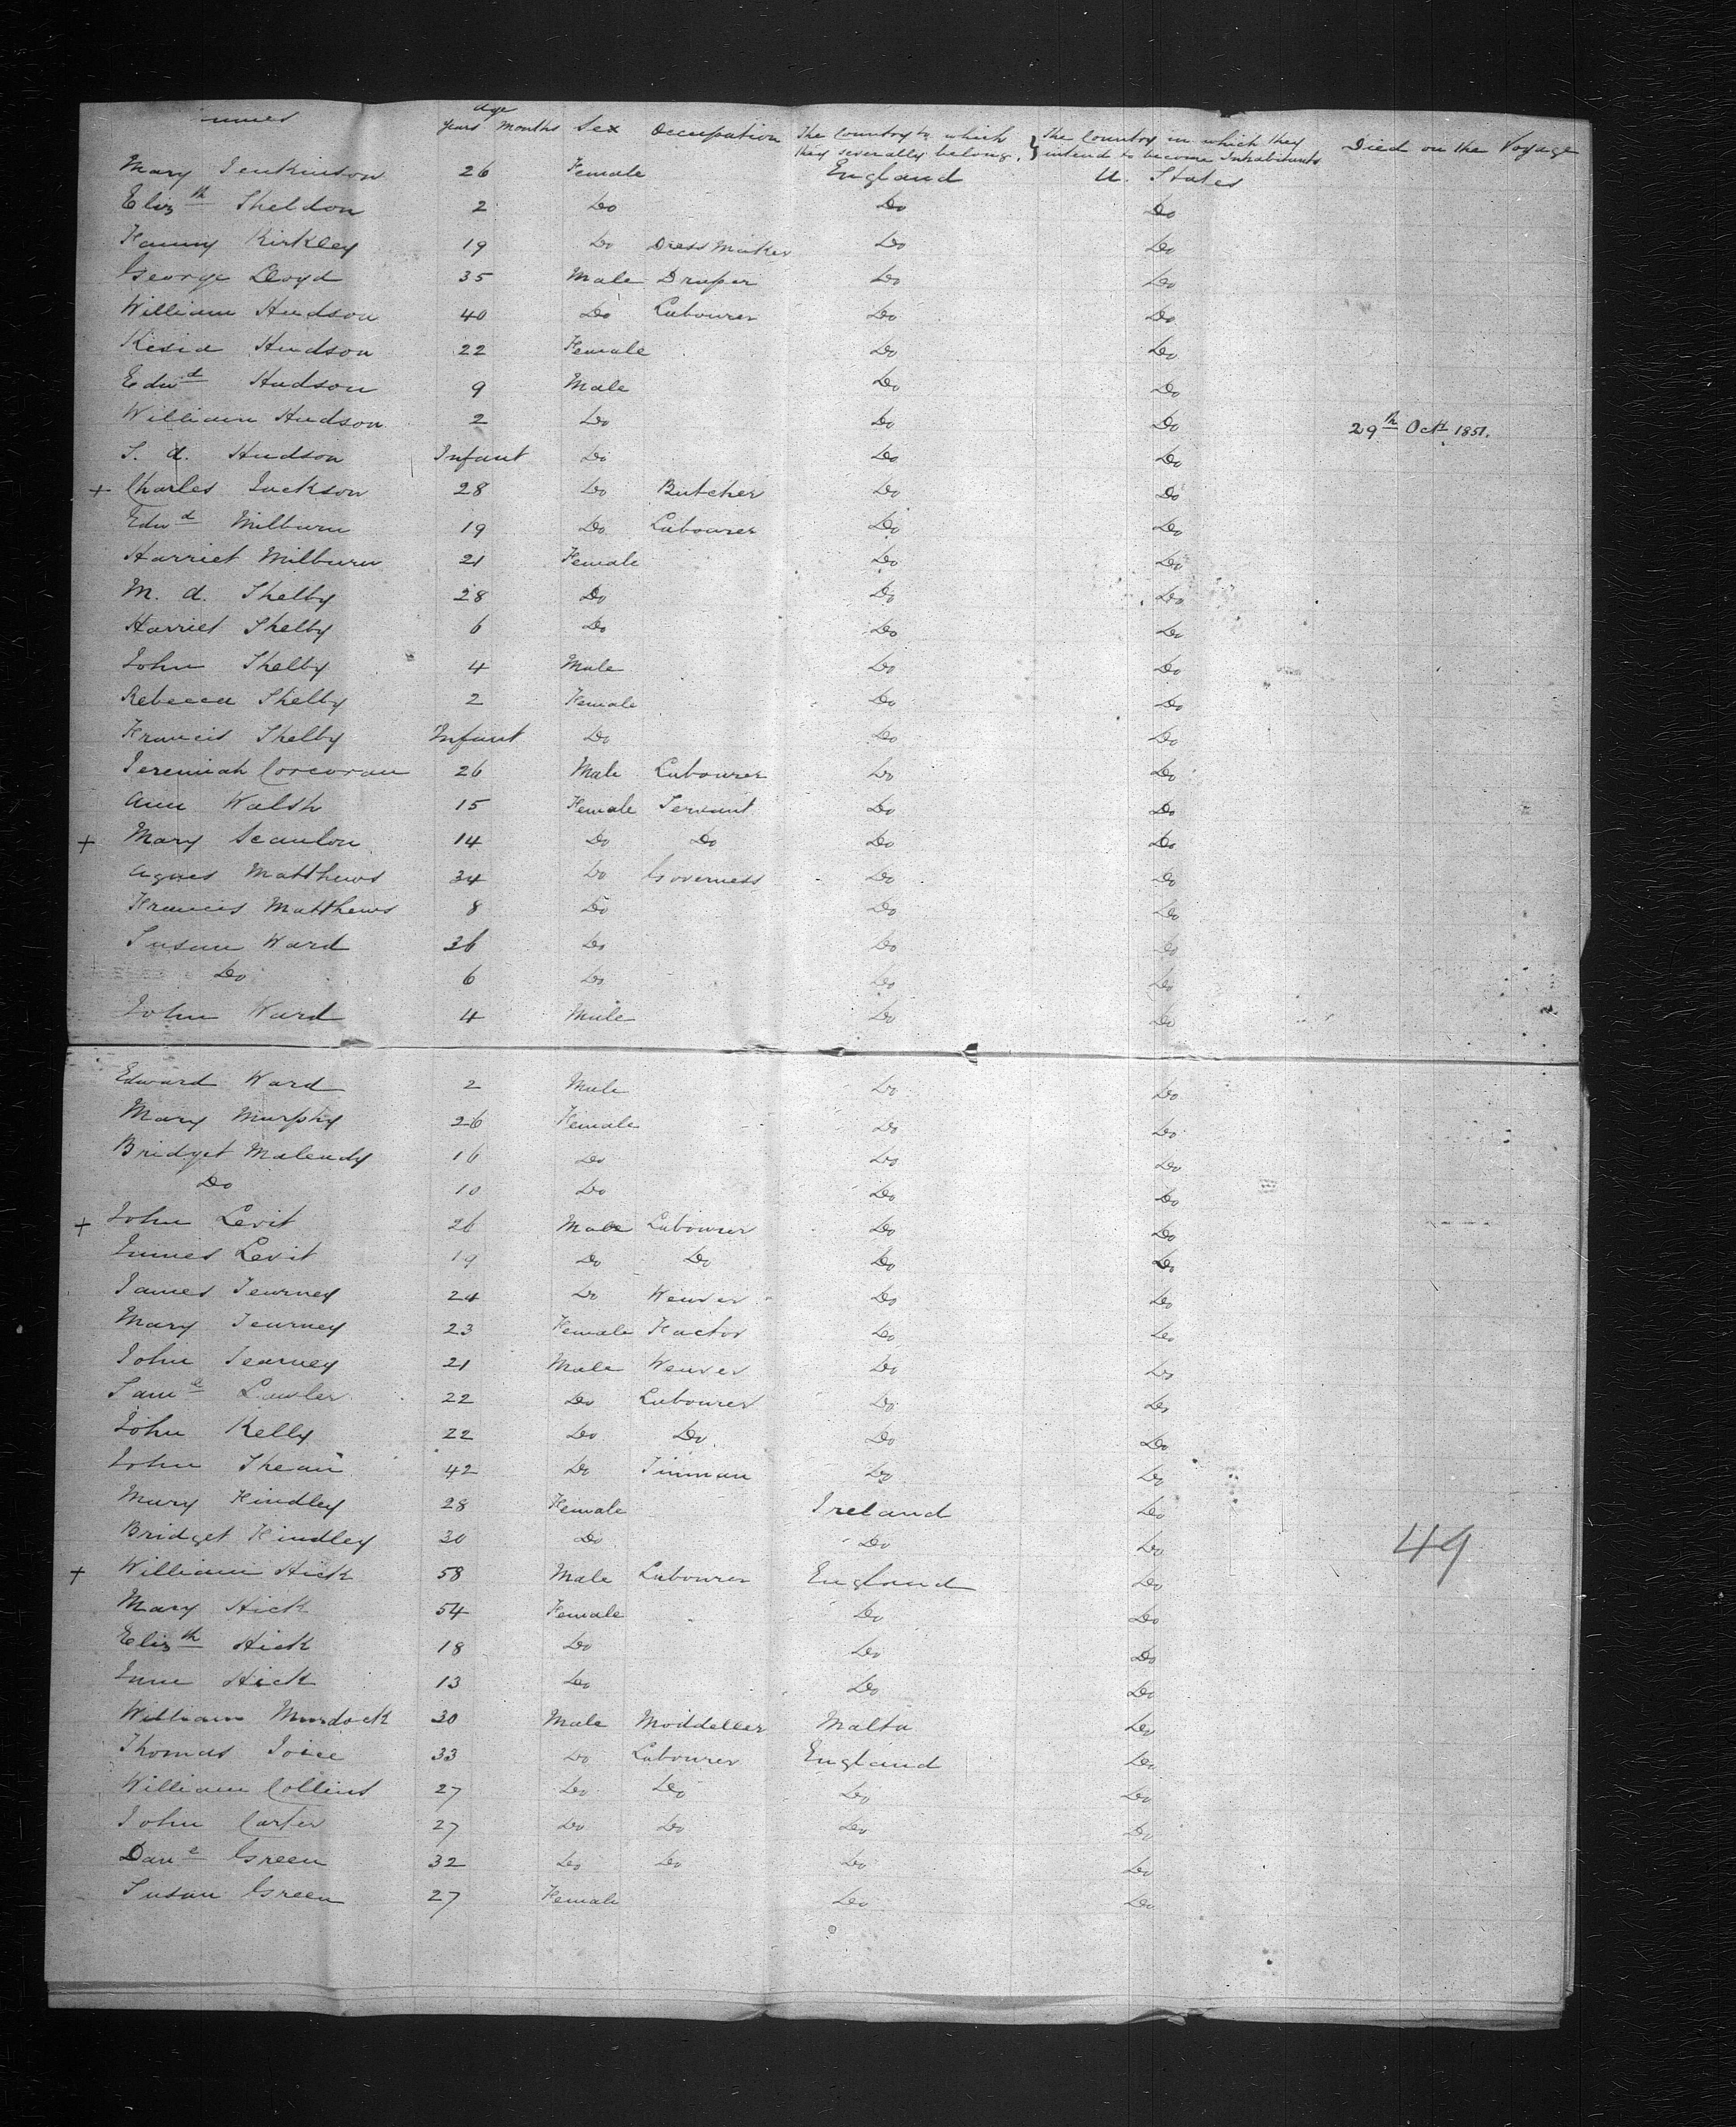 Names age years months Sex Occupation The Country to which they severally belong. } The Country in which they intend to become Inhabitants Died on the Voyage
Mary Jenkinson 26 Female England U. States
Elizth Sheldon 2 Do Do Do
Fanny Kirkley 19 Do Dress Maker Do Do
George Lloyd 35 Male Draper Do Do
William Hudson 40 Do Labourer Do Do
Kesia Hudson 22 Female Do Do
Edwd Hudson 9 Male Do Do
William Hudson 2 Do Do Do 29th Oct 1851.
S. A. Hudson Infant Do Do Do
+ Charles Jackson 28 Do Butcher Do Do
Edwd Milburn 19 Do Labourer Do Do
Harriet Milburn 21 Female Do Do
M. A. Shelby 28 Do Do Do
Harriet Shelby 6 Do Do Do
John Shelby 4 Male Do Do
Rebecca Shelby 2 Female Do Do
Francis Shelby Infant Do Do Do
Jeremiah Corcoran 26 Male Labourer Do Do
Ann Walsh 15 Female Servant Do Do
+ Mary Scanlon 14 Do Do Do Do
Agnes Matthews 34 Do Governess Do Do
Francis Matthews 8 Do Do Do
Susan Ward 36 Do Do Do
Do 6 Do Do Do
John Ward 4 Male Do Do
Edward Ward 2 Male Do Do
Mary Murphy 26 Female Do Do
Bridget Maleady 16 Do Do Do
Do 10 Do Do Do
+ John Levit 26 Male Labourer Do Do
James Levit 19 Do Do Do Do
James Tearney 24 Do Weaver Do Do
Mary Tearney 23 Female Factor Do Do
John Tearney 21 Male Weaver Do Do
Saml Lawler 22 Do Labourer Do Do
John Kelly 22 Do Do Do Do
John 42 Do Tinman Do Do
Mary Hindley 28 Female Ireland Do
Bridget Hindley 30 Do Do Do
49
+ William Hick 58 Male Labourer England Do
Mary Hick 54 Female Do Do
Elizth Hick 18 Do Do Do
Jane Hick 13 Do Do Do
William Murdock 30 Male Moddeller Malta Do
Thomas Joice 33 Do Labourer England Do
William Collins 27 Do Do Do Do
John Carter 27 Do Do Do Do
Danl Green 32 Do Do Do Do
Susan Green 27 Female Do Do